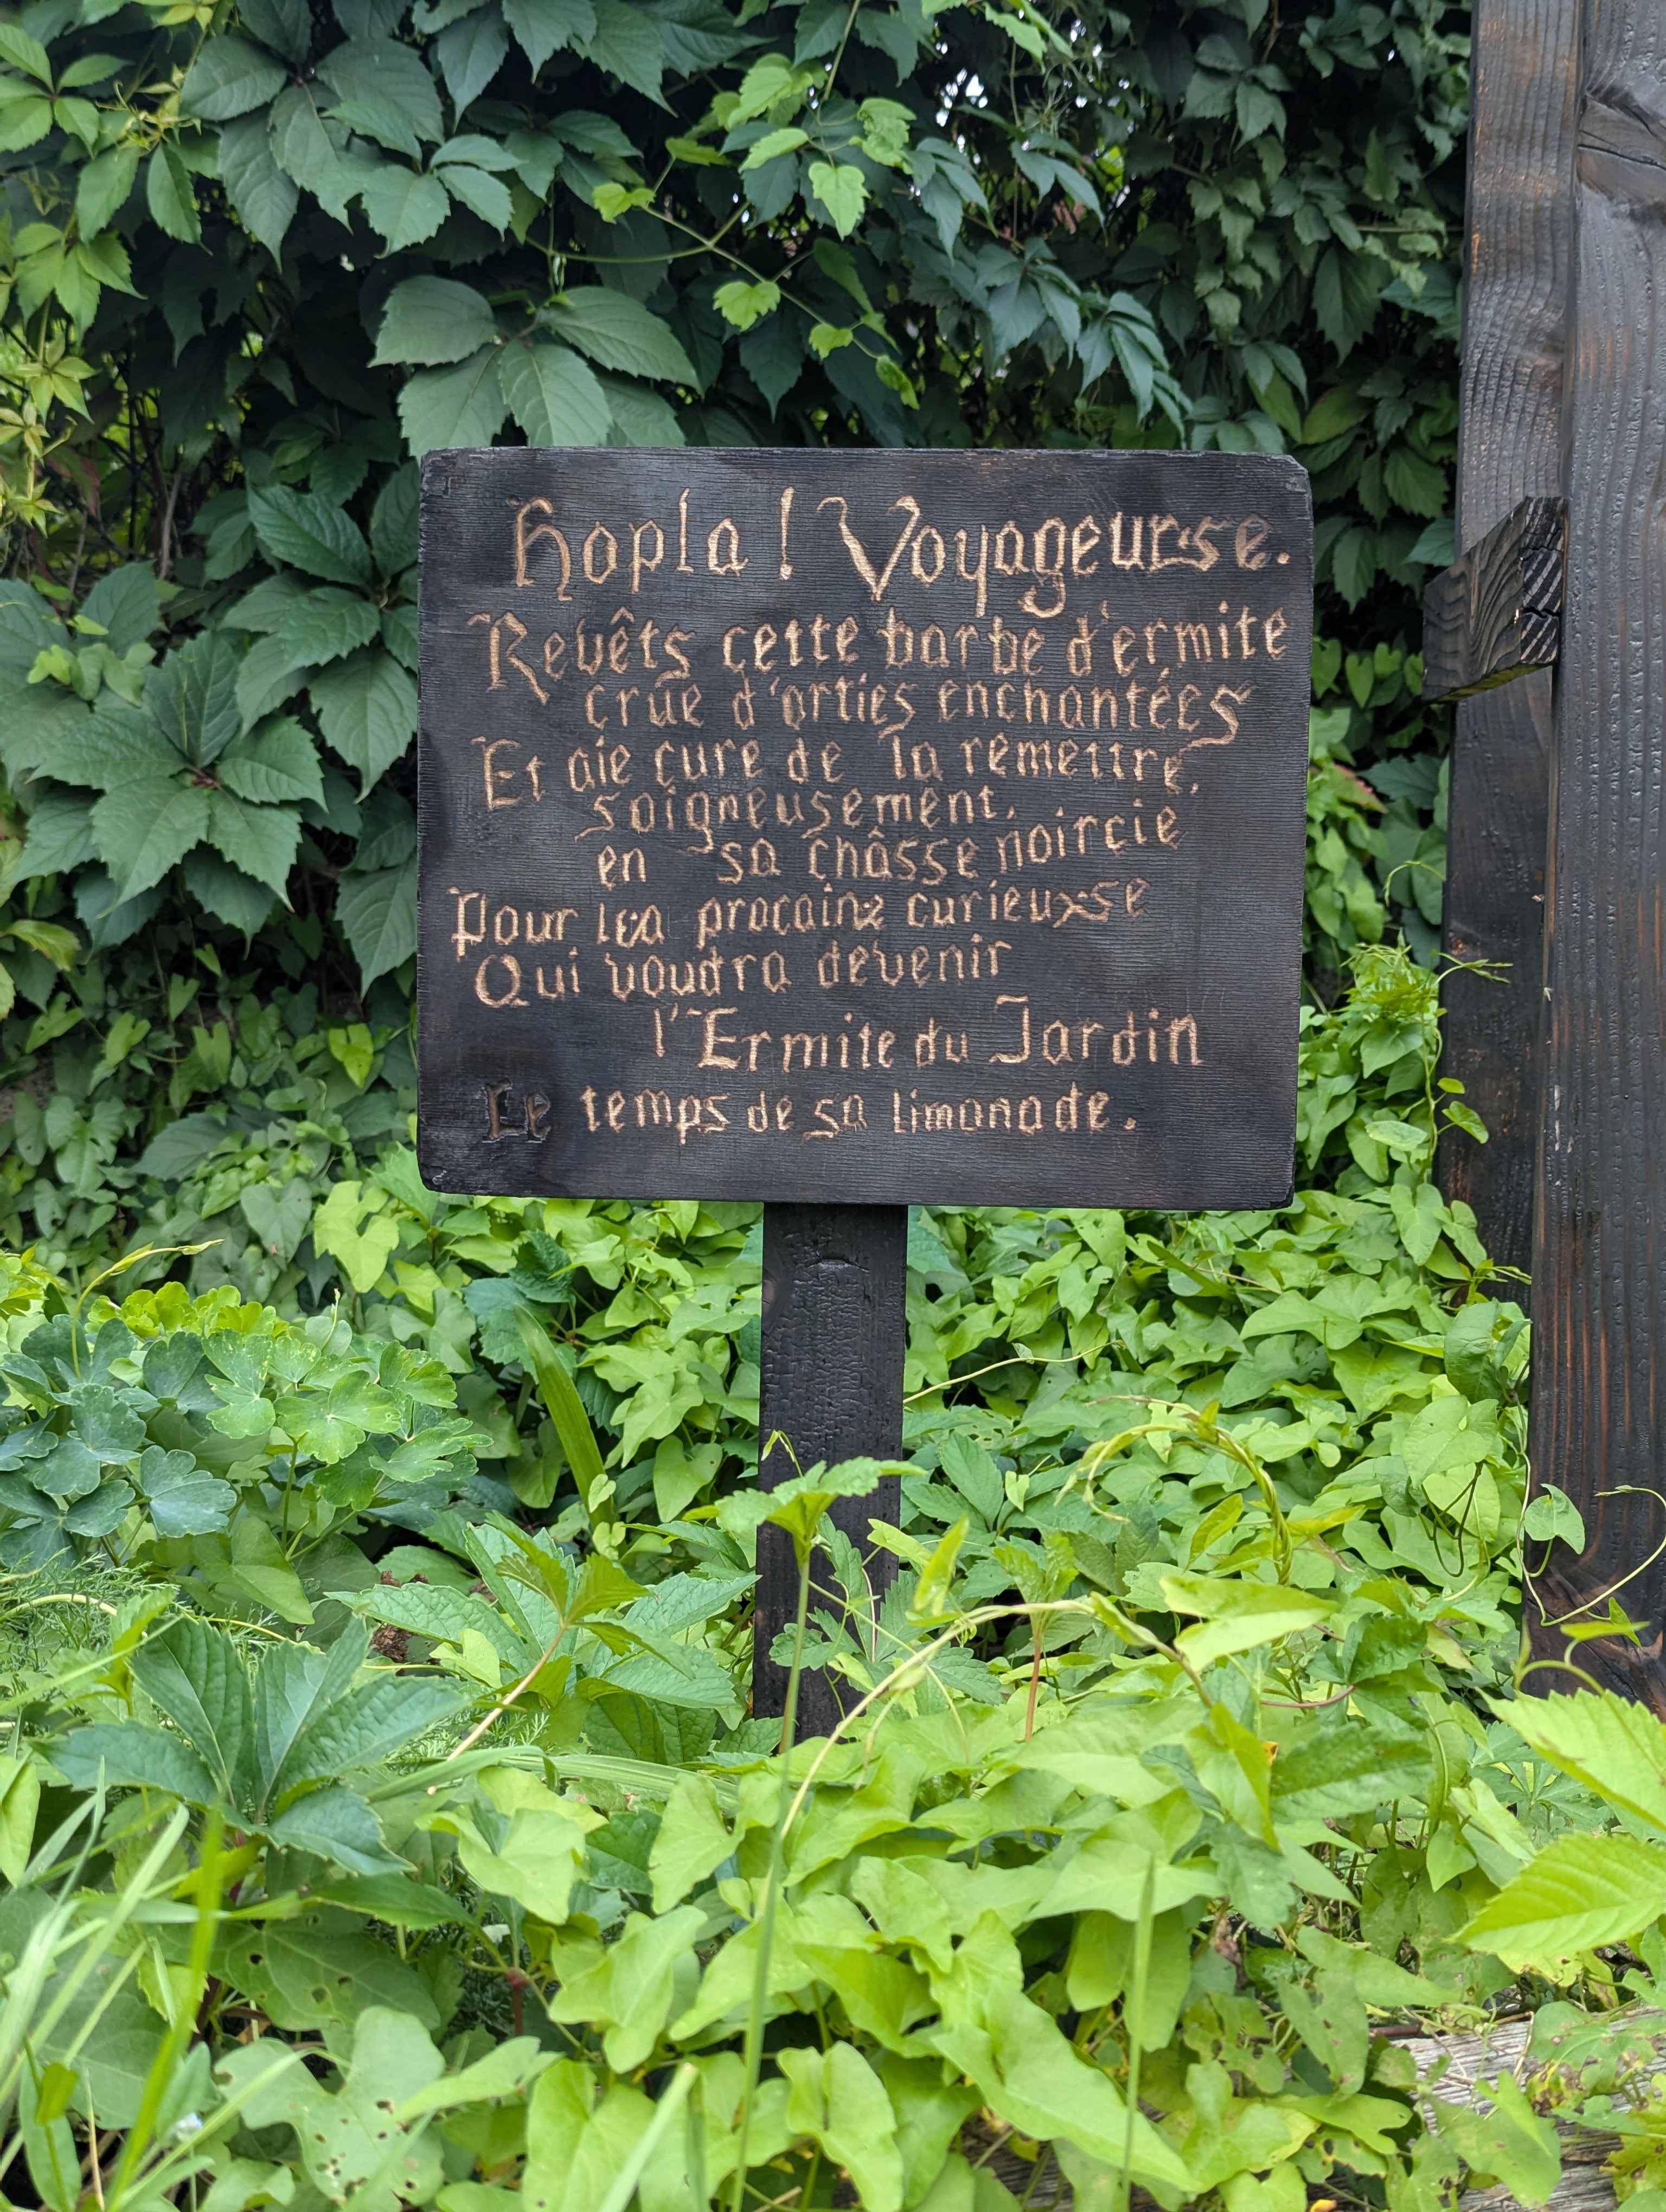 Hopla ! Voyageur·se.
Revêts cette barbe d'ermite
crue d'orties enchantées
Et aie cure de la remettre,
soigneusement,
en sa châsse noircie
Pour le·a procain·e curieux·se
Qui voudra devenir
l'Ermite du Jardin
Le temps de sa limonade.